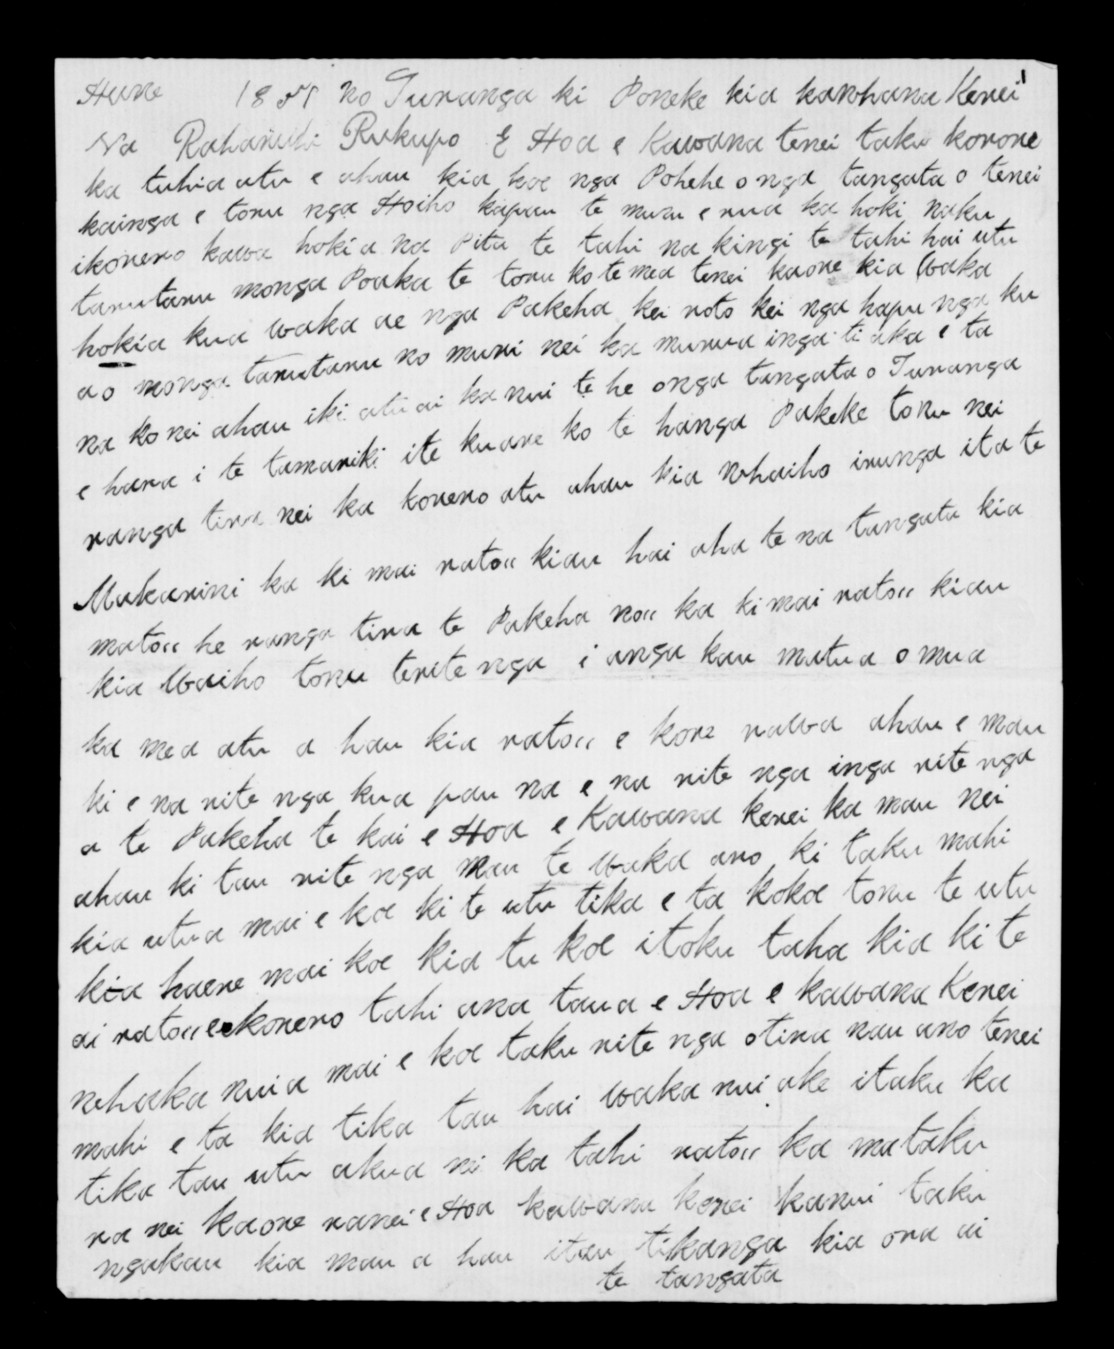 Hune 1851 no Turanga ki Poneke kia kawhana Kerei
Na Raharuhi Rukupo E Hoa e Kawana tenei taku korore
ka tuhia atu e ahau kia koe nga Pohehe o nga tangata o tenei
kainga e toru nga Hoiho kapau te muru e rua ka hoki naku
ikorero kawa hokia na Pita te tahi na kingi te tahi hai utu
tanutanu monga Poaka te toru ko te mea tenei kaore kia Waka
hokia kua waka ae nga Pakeha kei roto kei nga hapu nga ku
a o monga tanutanu no muri nei ka murua inga ti aka e ta
na ko nei ahau iki atu ai ka nui te he onga tangata o Turanga
e hara i te tamariki ite kuare ko te hanga Pakeke toku nei
ranga tira nei ka korero atu ahau kia Whaiho irunga ita te
Makarini ka ki mai ratou kiau hai aha te na tangata kia
matou he ranga tira te Pakeha nou ka ki mai ratou kiau
kia Waiho tonu terite nga i anga kau matua o mua
ka mea atu a hau kia ratou e kore rawa ahau e mau
ki e na rite nga kua pau na e na rite nga inga rite nga
a te Pakeha te kai e Hoa e Kawana kerei ka mau nei
ahau ki tau rite nga Mau te waka aro ki taku mahi
kia utua mai e koe ki te utu tika e ta kokoe tonu te utu
kia haere mai koe kia tu koe itoku taha kia ki te
ai ratou e korero tahi ana taua e Hoa e kawana Kerei
whaka nuia mai e koe taku rite nga otira nau ano tenei
mahi e ta kia tika tau hai waka nui ake itaku ka
tika tau utu akua ni ka tahi ratou ka mataku
ra nei kaore ranei e Hoa kawana kerei kanui taku
ngakau kia mau a hau itau tikanga kia ora ai
te tangata